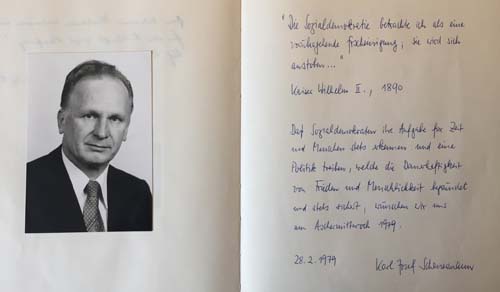 "Die Sozialdemokratie betrachte ich als eine
vorübergehende Erscheinung; sie wird sich
austoben..."
Kaiser Wilhelm II., 1890
Daß Sozialdemokraten ihre Aufgabe für Zeit
und Menschen stets erkennen und eine
Politik treiben, welche die Dauerhaftigkeit
von Frieden und Menschlichkeit begründet
und stets sichert, wünschen wir uns
am Aschermittwoch 1979.
28.2.1979 Karl Josef